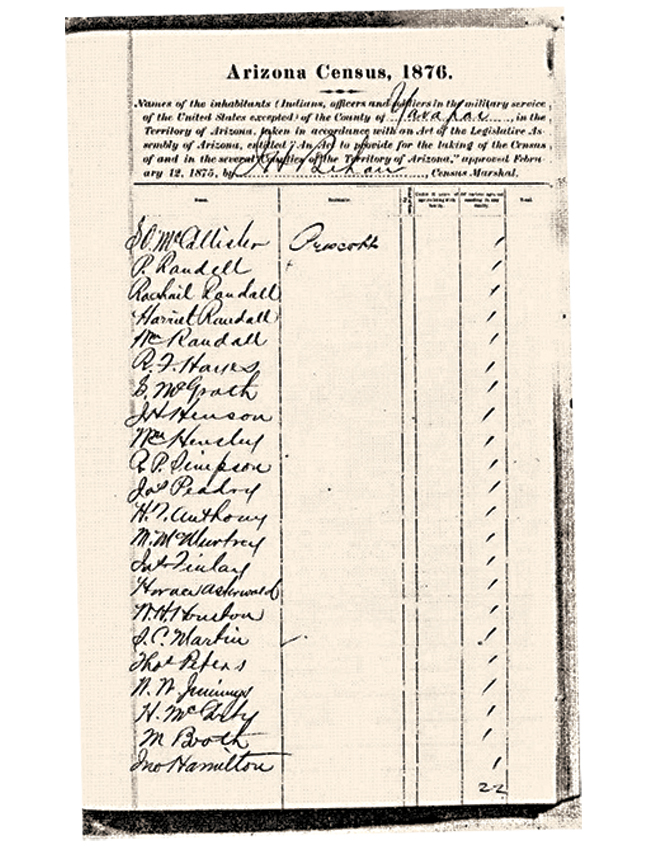 Arizona Census, 1876.
Names of the inhabitants (Indians, officers and soldiers in the military service
of the United States excepted) of the County of Yavapai, in the
Territory of Arizona, taken in accordance with an Act of the Legislative As-
sembly of Arizona, entitled "An Act to provide for the taking of the Census
of and in the several Counties of the Territory of Arizona," approved Febru-
ary 12, 1875, by J H Behan, Census Marshal.
Name. Residence. Total.
McAllister Prescott /
P. Randell /
Rachail Randall /
Harriet Randall /
Randall /
R. F. Hayes /
McGrath /
J H Henson /
Hensley /
R. P. Simpson /
Jos Peadry /
H. T. Anthony /
M. McMurtrey /
Finlay /
Horace /
W. H. Houston /
J. C. Martin /
Thos Peters /
N. W. Jennings /
H. /
M Booth /
Jno Hamilton /
22